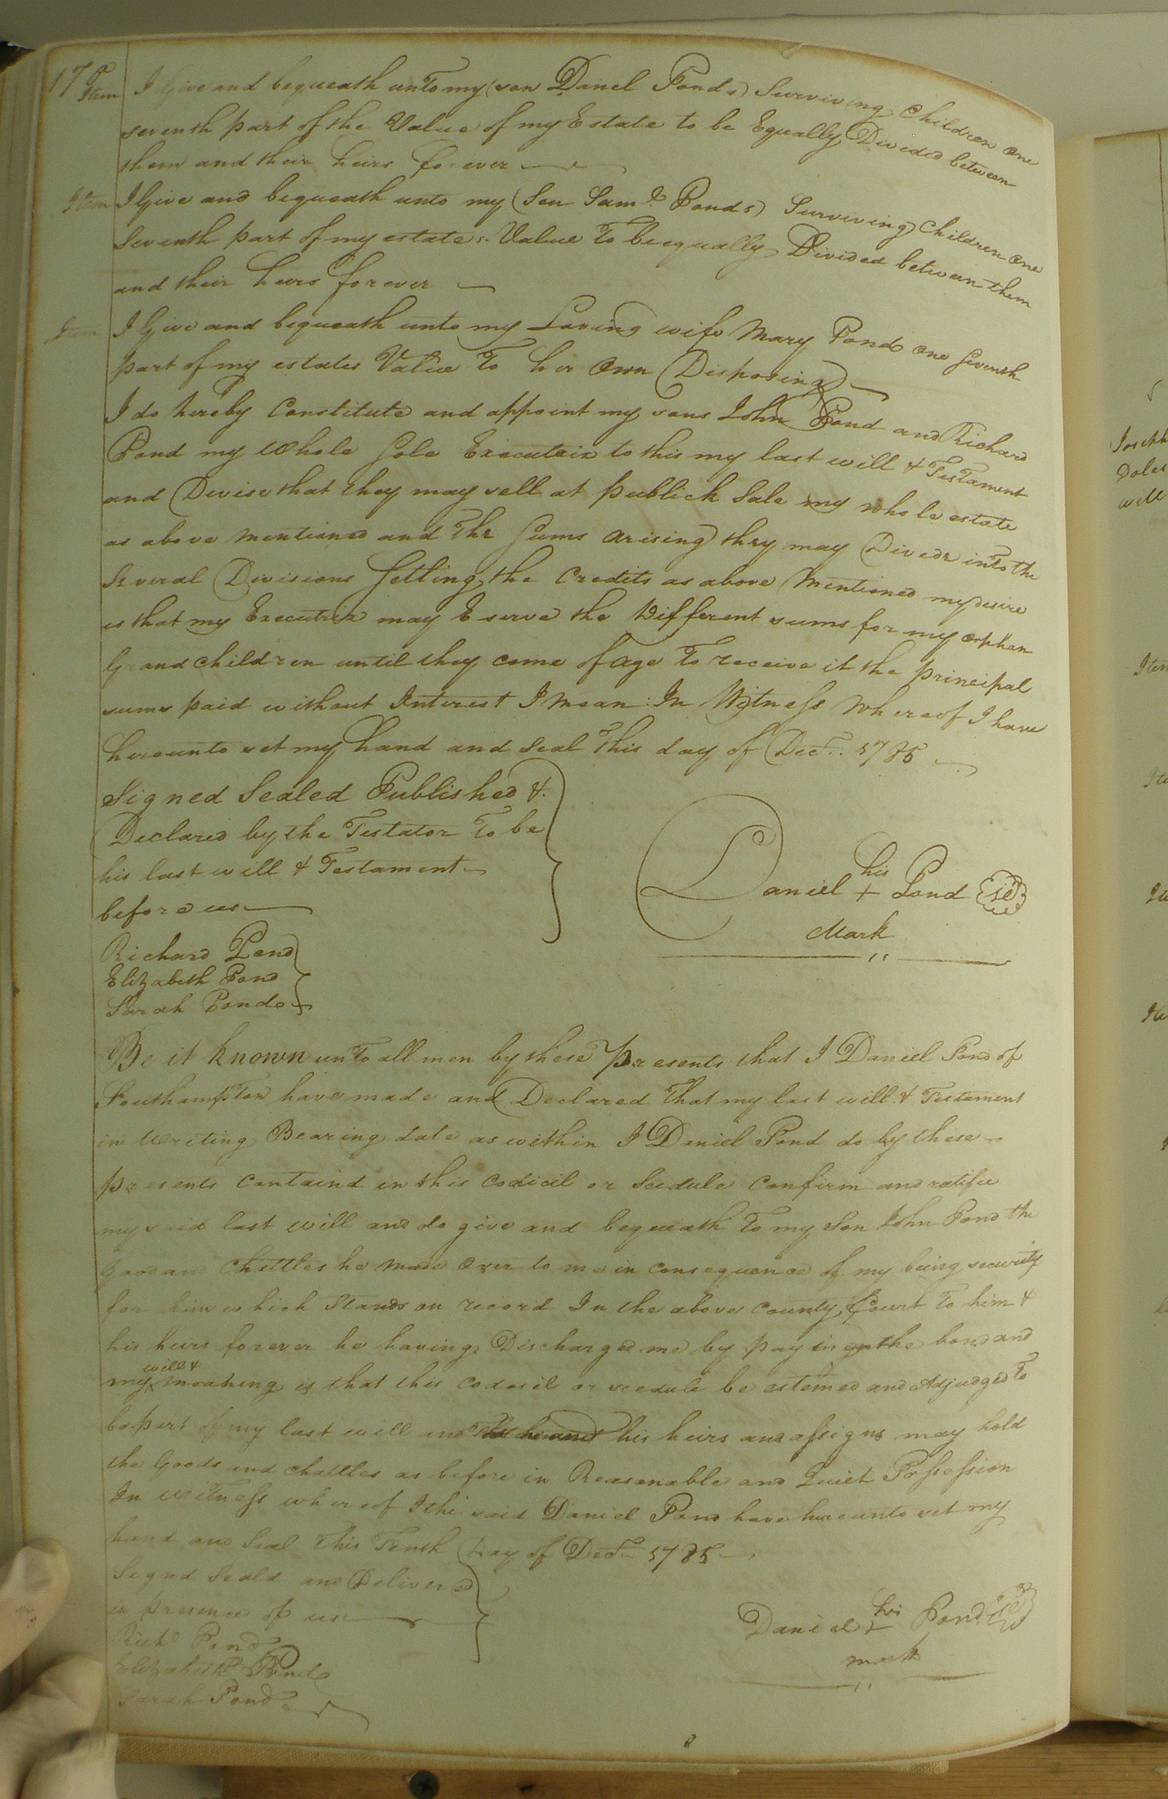 17
Item I Give and bequeath unto my (son Danel Ponds) Surviving Children one
seventh part of the Value of my Estate to be Equally Divided between
them and their heirs forever
Item I Give and bequeath unto my (Son Saml Ponds) Surviving Children one
Seventh part of my estates Value To be equally Divided between them
and their heirs forever
Item I Give and bequeath unto my Loving wife Mary Pond one Seventh
part of my estates Value To her Own Disposing
I do hereby Constitute and appoint my sons John Pond and Richard
Pond my Whole Sole Executrix to this my last will & Testament
and Devise that they may sell at publick Sale my whole estate
as above mentioned and The Sums arising they may Divede into the
Several Divisions Setting the Credits as above Mentioned my desire
is that my Executrix may Eserve the Different sums for my orphan
Grandchildren until they come of age To receive it the principal
sums paid without Interest I mean: In Witness Whereof I have
hereunto set my hand and Seal This day of Decr. 1785
Signed Sealed Published &
Declared by the Testator To be
his last will & Testament
before us
Daniel his + Pond
Mark
Richard Pond
Elizabeth Pond
Sarah Pond
Be it known unto all men by these presents that I Daniel Pond of
Southampton have made and Declared That my last will & Testament
in Writing Bearing date as within I Daniel Pond do by these
presents Containd in this Codicil or Scedule Confirm and ratifie
my said last will and do give and bequeath To my Son John Pond the
Good and Chattles he Made Over to me in consequence of my being security
for him which Stands on record In the above County Court To him &
his heirs forever he having Discharged me by paying the bond and
my will & meaning is that this Codocil or scedule be estemed and Adjudged To
be part of my last will and his heirs and assigns may hold
the Goods and chattles as before in Reasonable and Quiet Possession
In Witness whereof I the said Daniel Pond have hereunto set my
hand and Seal This Tenth Day of Decr 1785
Signd Seald and Deliverd
in presence of us
Daniel his + Pond
mark
Richd Pond
Elizabeth Pond
Sarah Pond
Joseph
Doles
will
Item